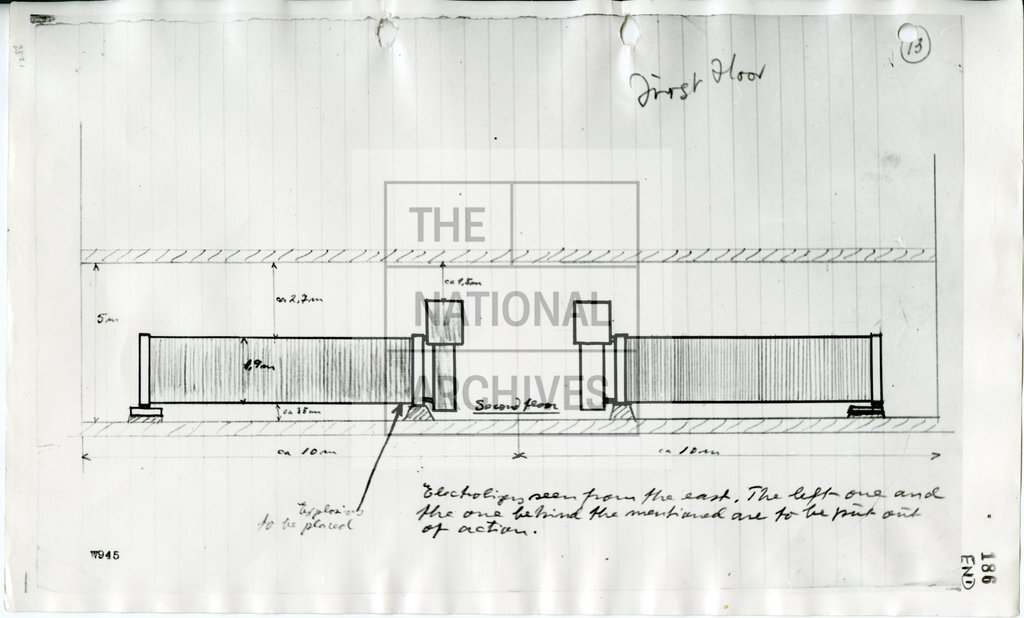 13
First Floor
THE
NATIONAL
ARCHIVES
5m
ca 2,7m
ca 1,5m
1,9m
ca 35cm
Second floor
ca 10m
ca 10m
Explosives
to be placed
seen from the east. The left one and
the one behind the mentioned are to be put out
of action.
W945
186
END